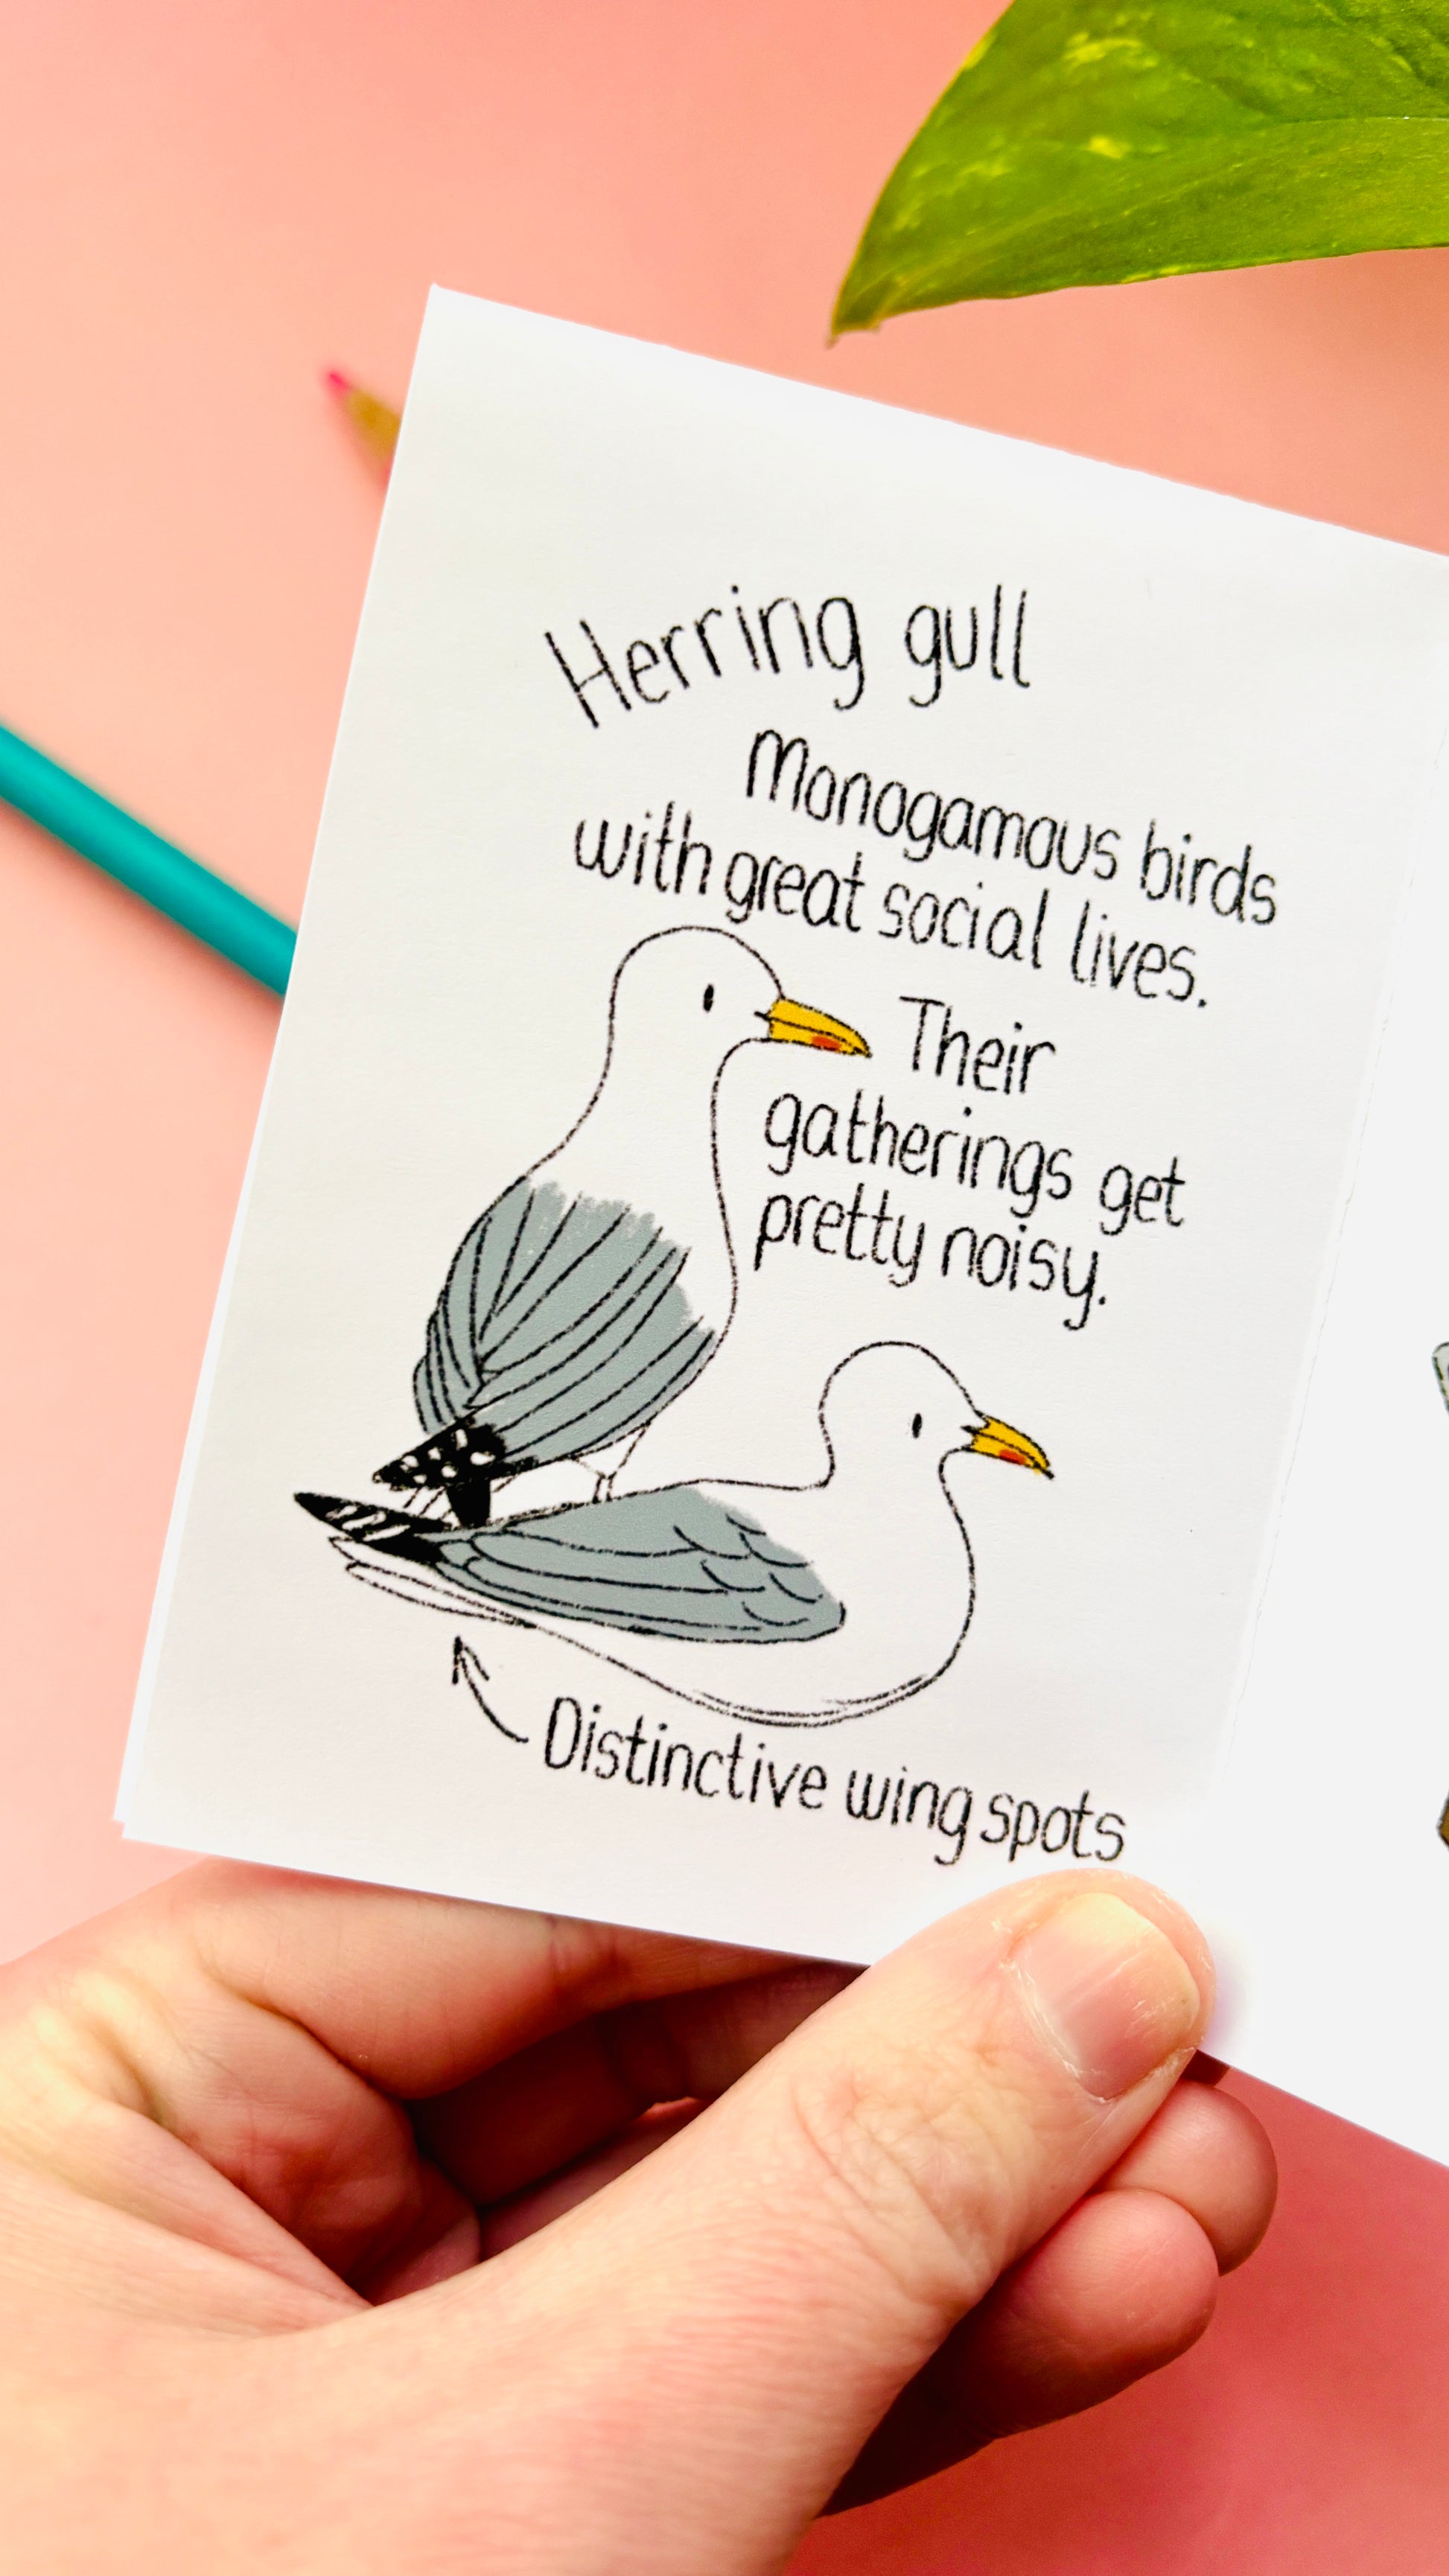 Herring gull
Monogamous birds
with great social lives.
Their
gatherings get
pretty noisy.
Distinctive wing spots